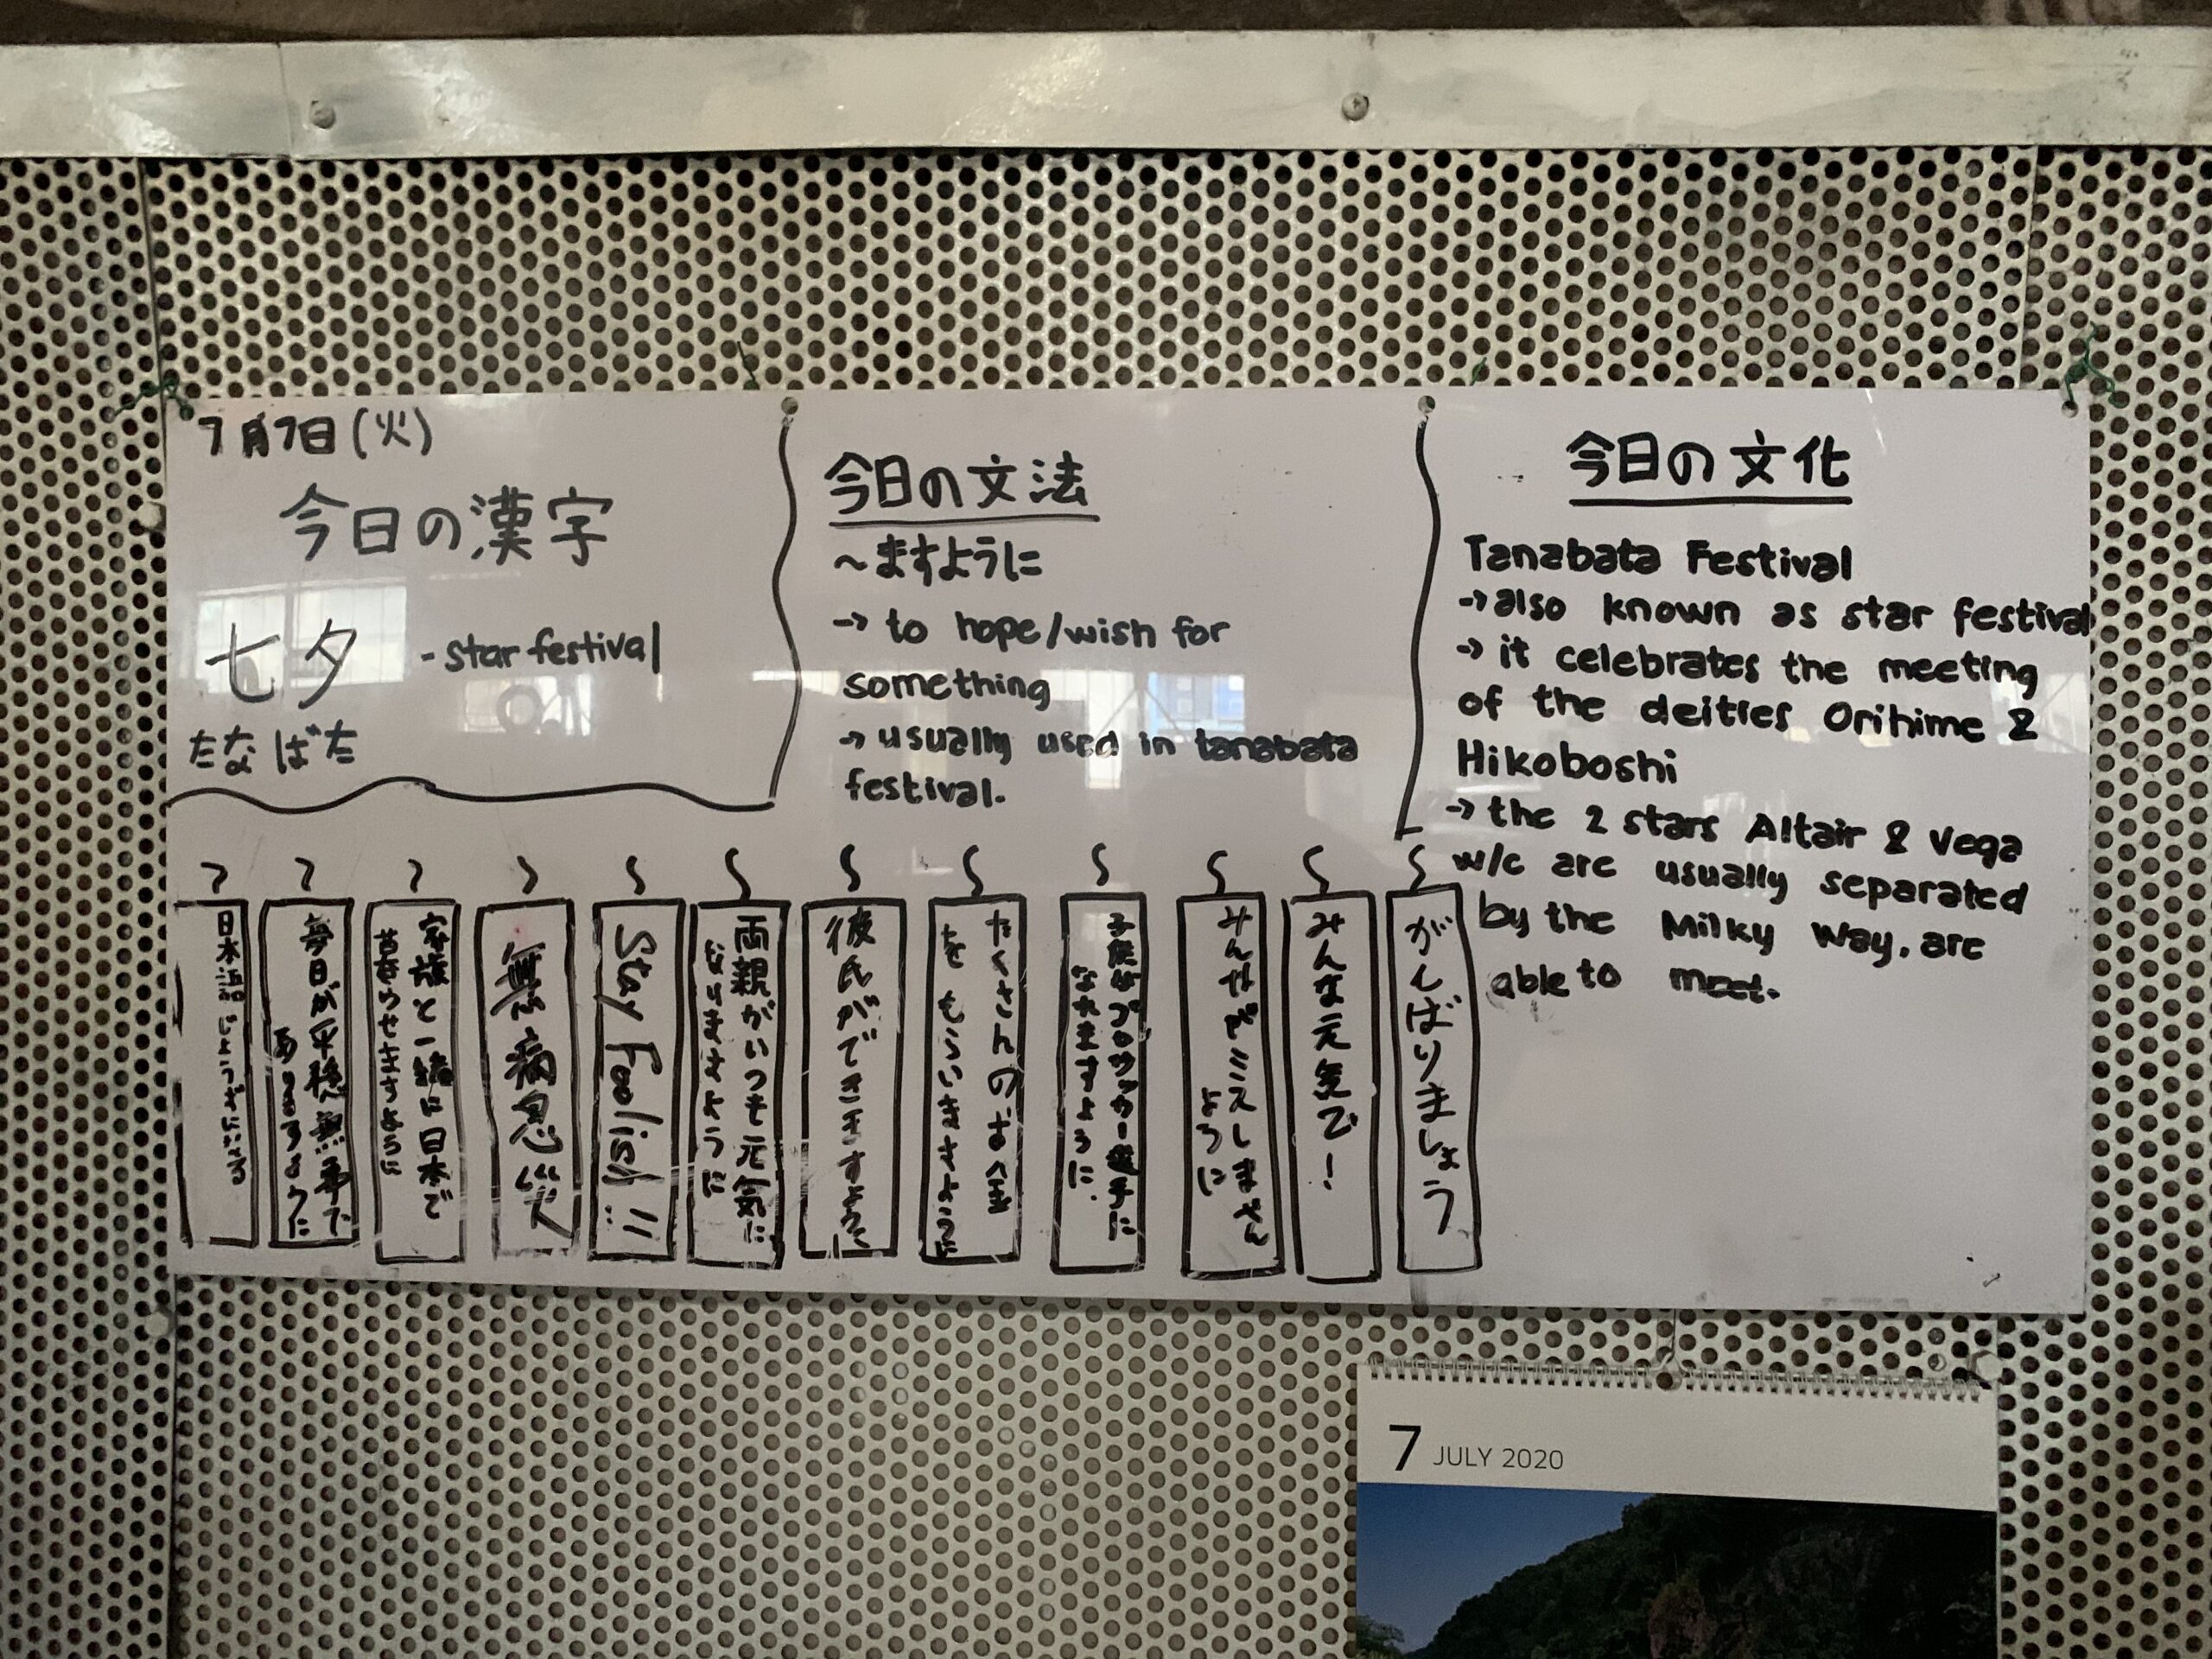 7月7日(火)
今日の漢字
七夕 - star festival
たなばた
今日の文法
～ますように
→ to hope/wish for
something
→ usually used in tanabata
festival.
今日の文化
Tanabata Festival
→ also known as star festival
→ it celebrates the meeting
of the deities Orihime &
Hikoboshi
→ the 2 stars Altair & Vega
w/c are usually separated
by the Milky Way, are
able to meet.
がんばりましょう
みんな元気で!
みんながミスしません
ように
子供がプロサッカー選手に
なれますように.
たくさんのお金
をもらいますように
彼氏ができますように
両親がいつも元気に
なりますように
Stay Foolish...!!
無病息災
家族と一緒に日本で
暮らせますように
今日が平穏無事で
ありますように
日本語じょうずになる
7 JULY 2020